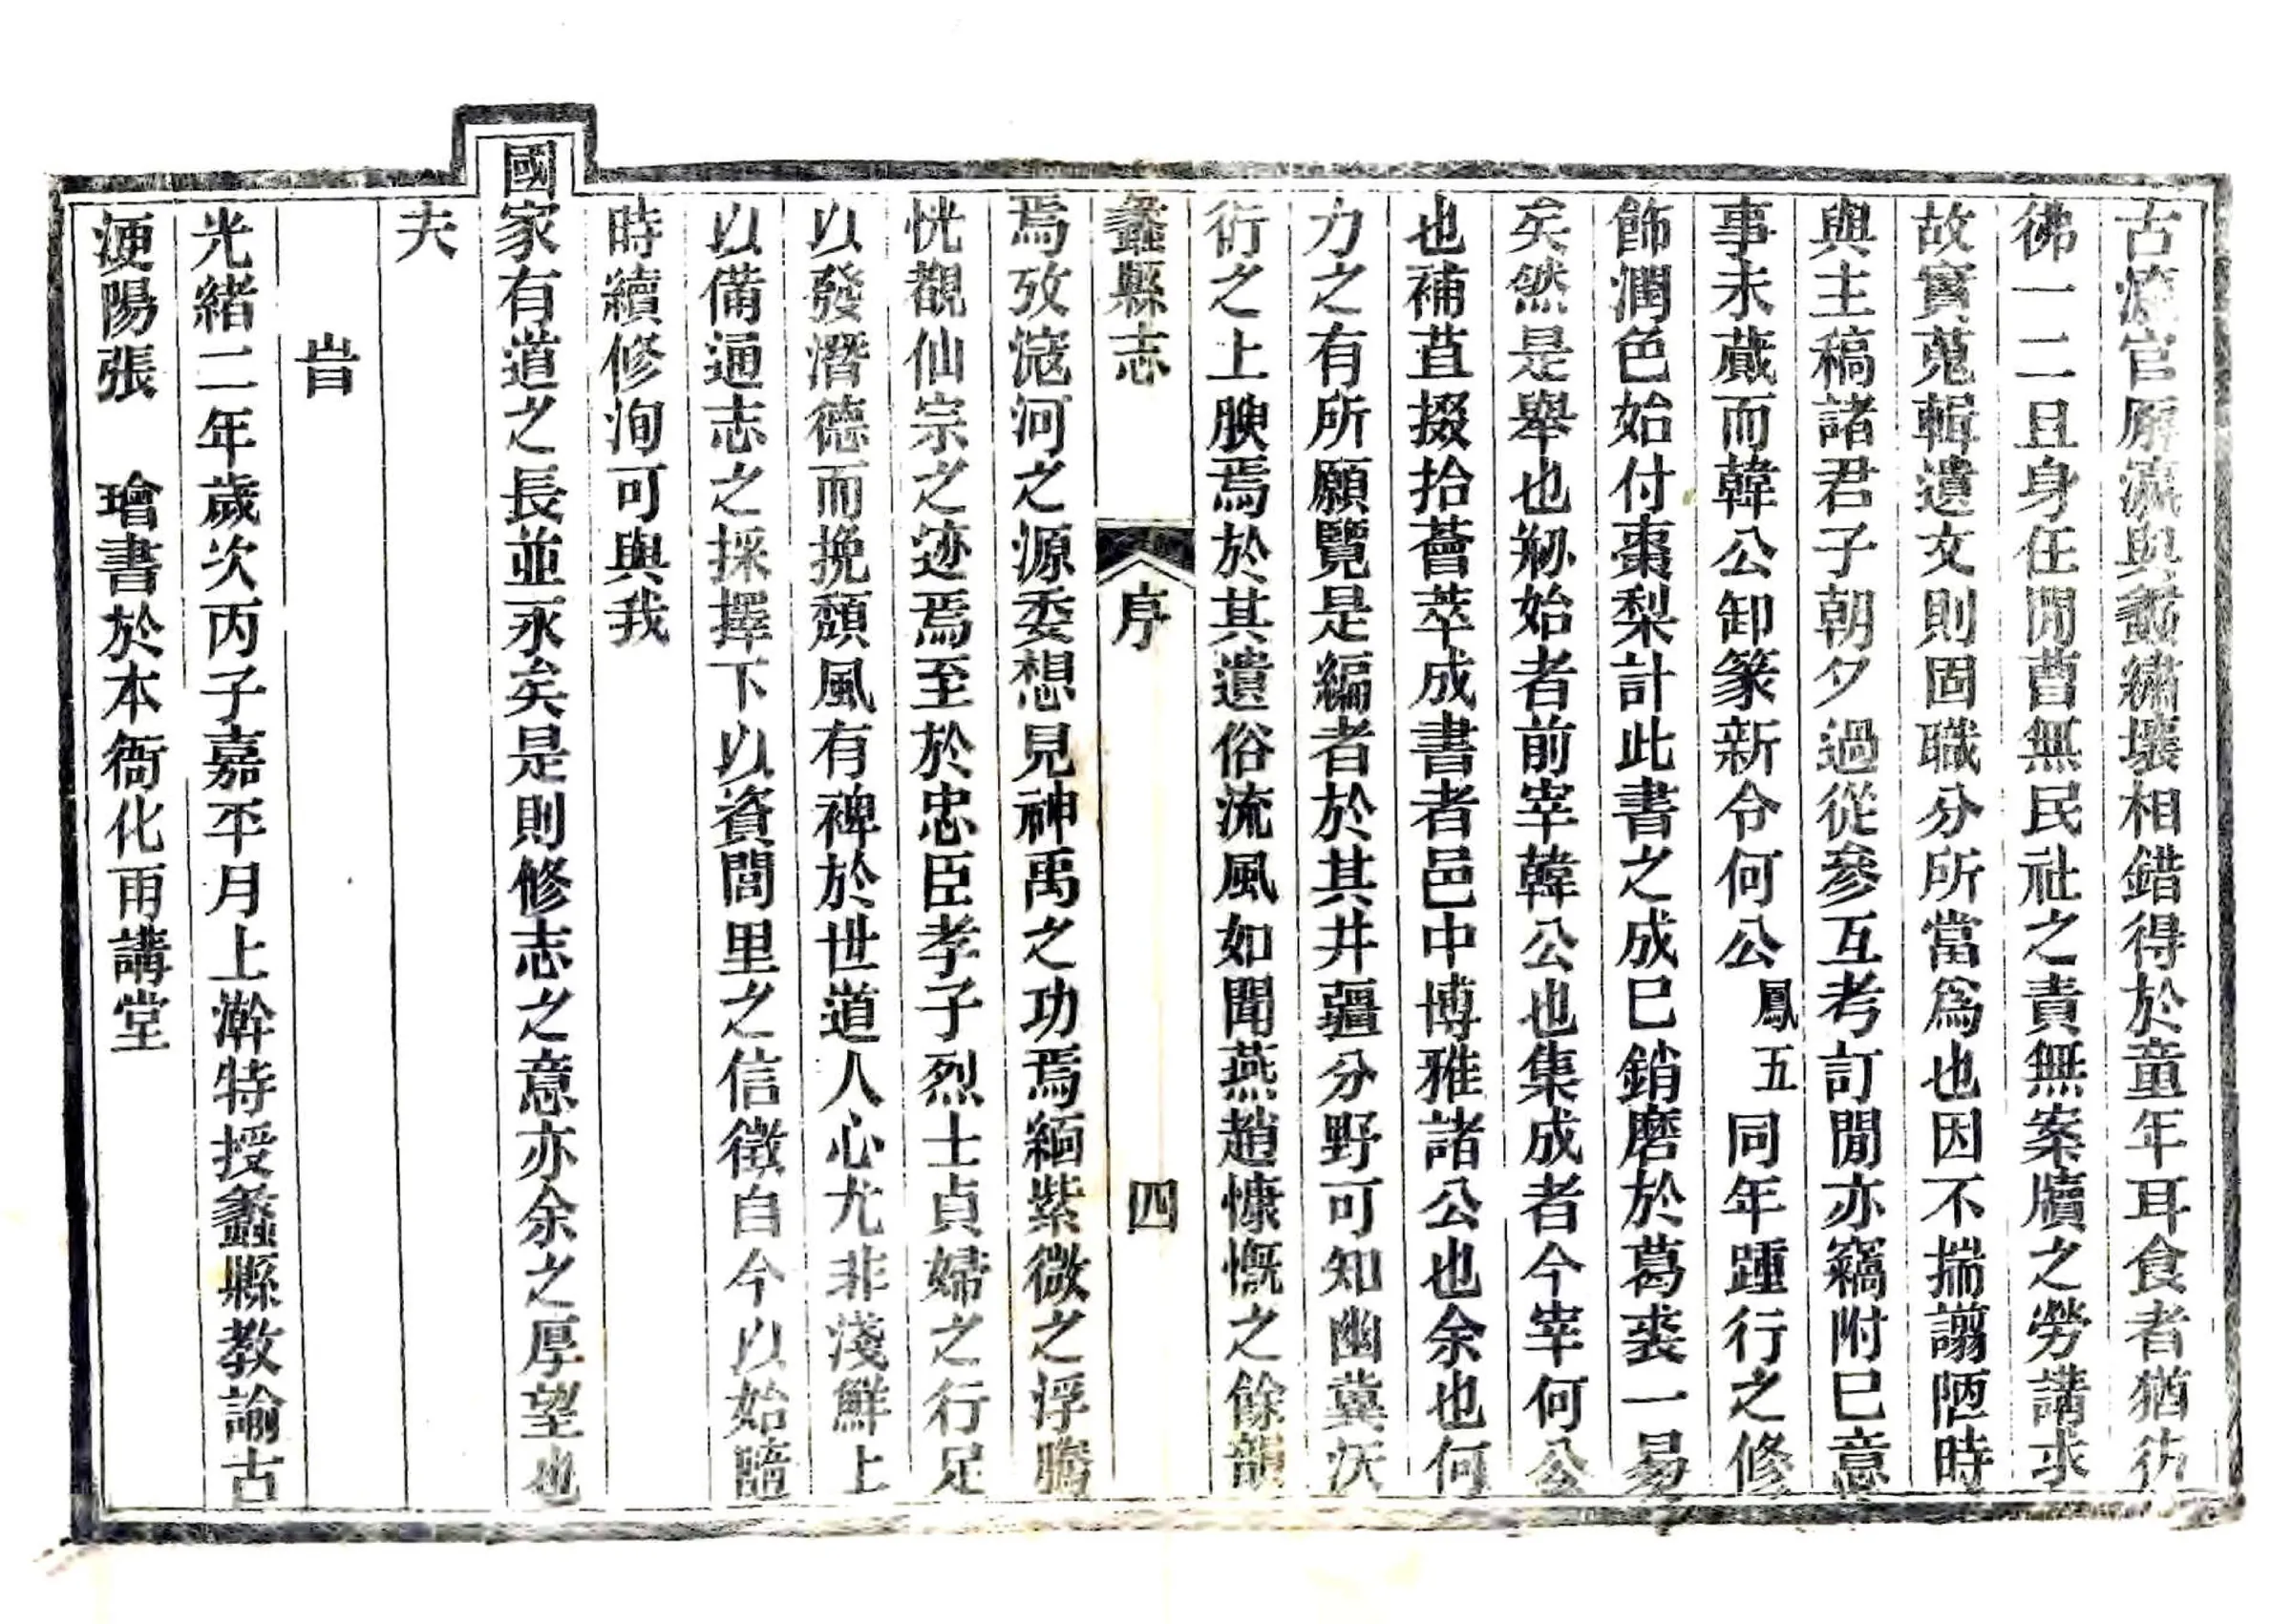 古㴑官廨瀛與蠡繡壤相錯得於童年耳食者猶彷
彿一二且身任閒曹無民社之責無案牘之勞講求
故實蒐輯遺文則固職分所當爲也因不揣謭陋時
與主稿諸君子朝夕過從參互考訂閒亦竊附己意
事未蕆而韓公卸篆新令何公鳳五同年踵行之修
飾潤色始付棗梨計此書之成已銷磨於葛裘一易
矣然是舉也剏始者前宰韓公也集成者今宰何公
也補苴掇拾薈萃成書者邑中博雅諸公也余也何
力之有所願覽是編者於其井疆分野可知幽冀沃
衍之上腴焉於其遺俗流風如聞燕趙慷慨之餘韻
蠡縣志 序 四
焉攷滱河之源委想見神禹之功焉緬紫微之浮騰
恍覩仙宗之迹焉至於忠臣孝子烈士貞婦之行足
以發潛德而挽頽風有裨於世道人心尤非淺鮮上
以備通志之採擇下以資閭里之信徵自今以始隨
時續修洵可與我
國家有道之長並永矣是則修志之意亦余之厚望也
夫
旹
光緒二年歲次丙子嘉平月上澣特授蠡縣教諭古
浭陽張 璯書於本衙化雨講堂